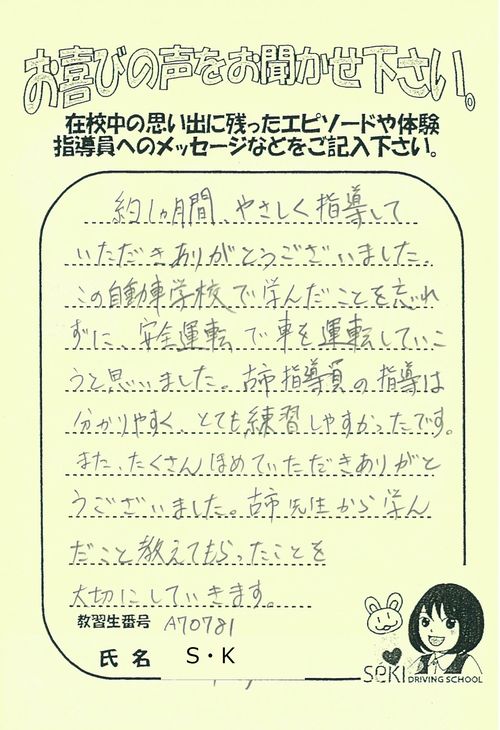 お喜びの声をお聞かせ下さい。
在校中の思い出に残ったエピソードや体験
指導員へのメッセージなどをご記入下さい。
約1ヵ月間、やさしく指導して
いただきありがとうございました。
この自動車学校で学んだことを忘れ
ずに、安全運転で車を運転していこ
うと思いました。古市指導員の指導は
分かりやすく、とても練習しやすかったです。
また、たくさんほめていただきありがと
うございました。古市先生から学ん
だこと教えてもらったことを
大切にしていきます。
教習生番号 A70781
氏名 S・K
SEKI DRIVING SCHOOL